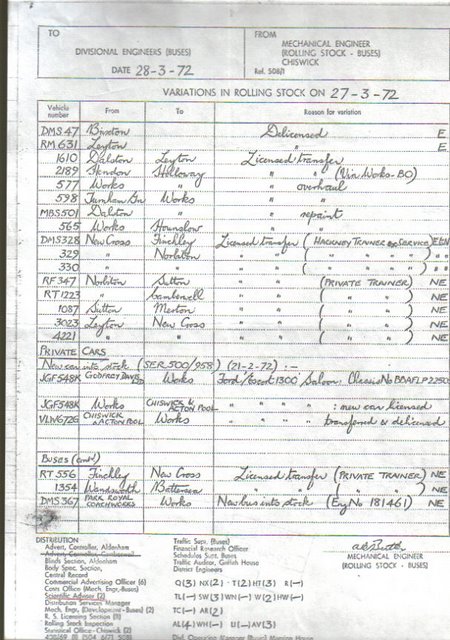 TO
DIVISIONAL ENGINEERS (BUSES)
DATE 28-3-72
FROM
MECHANICAL ENGINEER
(ROLLING STOCK - BUSES)
CHISWICK
Ref. 508/1
VARIATIONS IN ROLLING STOCK ON 27-3-72
Vehicle number From To Reason for variation
DMS 47 Brixton Delicensed E
RM 631 Leyton " E
1610 Dalston Leyton Licensed transfer
2189 Hendon Holloway " " (Via Works-BO)
577 Works " " overhaul
598 Turnham Gn Works " "
MBS 501 Dalston " " repaint
565 Works Hounslow " "
DMS 328 New Cross Finchley Licensed transfer (HACKNEY TRAINER SERVICE)
329 " Norbiton " " ( " " " )
330 " " " " ( " " " )
RF 347 Norbiton Sutton " " (PRIVATE TRAINER) NE
RT 1223 " Camberwell " " ( " " ) NE
1087 Sutton Merton " " ( " " ) NE
3023 Leyton New Cross " " ( " " ) NE
4221 " " " " ( " " ) NE
PRIVATE CARS
New car into stock (SER.500/958) (21-2-72) :-
JGF548K GODFREY DAVIS Works Ford/Escort 1300 Saloon: Chassis No
JGF548K Works CHISWICK & ACTON POOL " " " : new car licensed
VLW672G CHISWICK & ACTON POOL Works " " " transferred & delicensed
BUSES (contd)
RT 556 Finchley New Cross Licensed transfer (PRIVATE TRAINER) NE
1354 Wandsworth Battersea " " ( " " ) NE
DMS 367 PARK ROYAL COACHWORKS Works New bus into stock (Eng No 181461) NE
DISTRIBUTION
Advert. Controller, Aldenham
Blinds Section, Aldenham
Body Spec. Section,
Central Record
Commercial Advertising Officer (6)
Costs Office (Mech. Engr.-Buses)
Scientific Adviser (2)
Distribution Services Manager
Mech. Engr. (Development - Buses) (2)
R. S. Licensing Section (1)
Rolling Stock Inspection
Statistical Office - Chiswick (2)
Traffic Supt. (Buses)
Financial Research Officer
Schedules Supt. Buses
Traffic Auditor, Griffith House
District Engineers
Q(3) NX(2) - T(2) HT(3) R(-)
TL(-) SW(3) WN(-) W(2) HW(-)
TC(-) AR(2)
AL(4) WH(-) U(-) AV(3)
MECHANICAL ENGINEER
(ROLLING STOCK - BUSES)